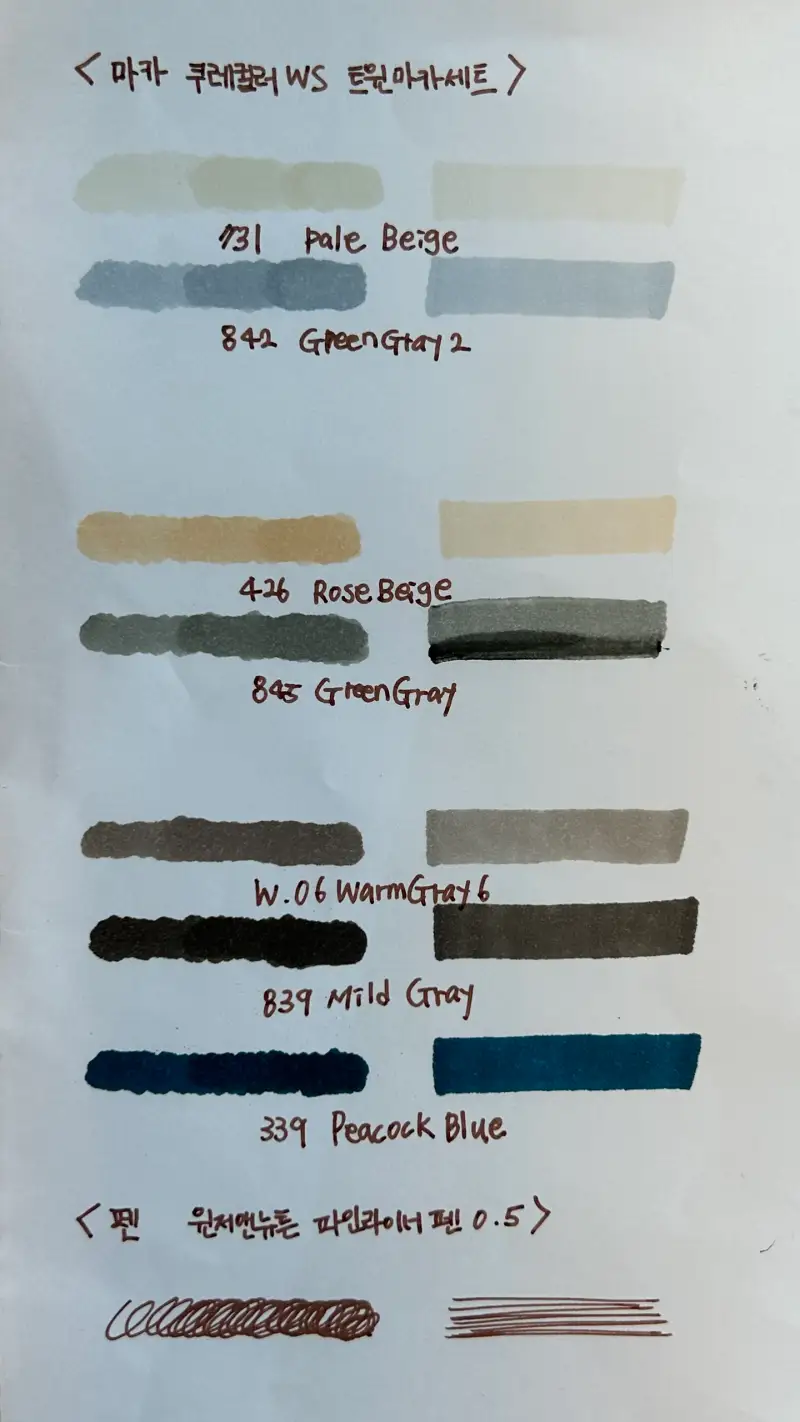 < 마카 쿠레컬러 WS 트윈마카세트 >
731 Pale Beige
842 Green Gray 2
426 Rose Beige
845 Green Gray
W.06 Warm Gray 6
839 Mild Gray
339 Peacock Blue
< 펜 윈저앤뉴튼 파인라이너 펜 0.5 >